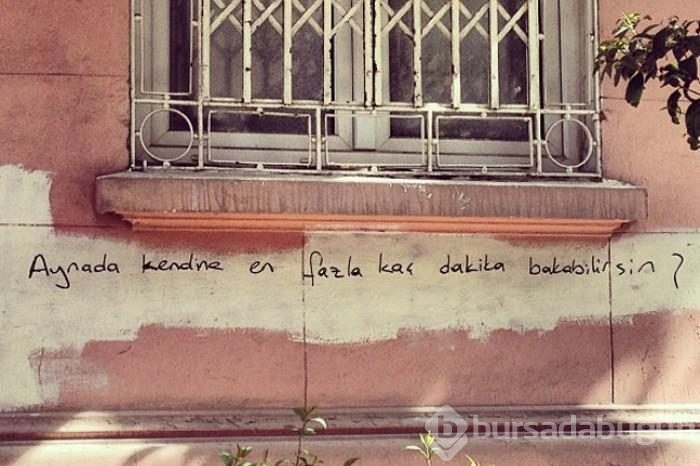 Aynada kendine en fazla kaç dakika bakabilirsin ?
bursadabugün